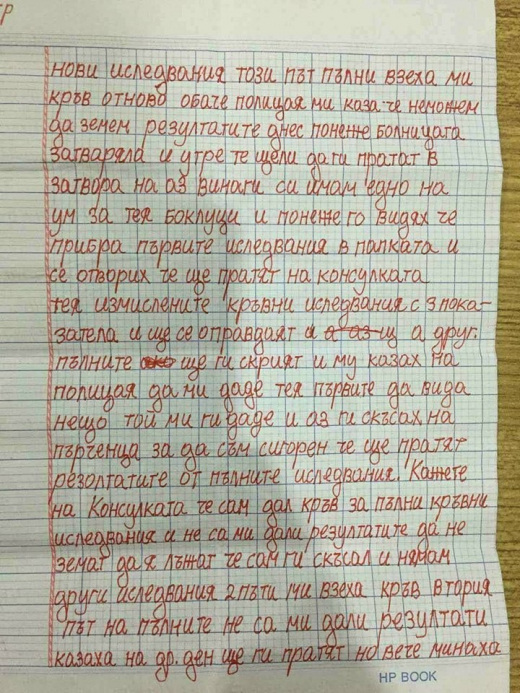 нови иследвания този път пълни взеха ми
кръв отново обаче полицая ми каза че неможем
да земем резултатите днес понеже болницата
затваряла и утре те щели да ги пратат в
затвора на аз винаги си имам едно на
ум за тея боклуци и понеже го видях че
прибра първите иследвания в папката и
се отворих че ще пратят на консулката
тея измислените кръвни иследвания с 3 пока-
зателa и ще се оправдаят и а аз щ а друг.
пълните ще ги скрият и му казах на
полицая да ми даде тея първите да вида
нещо той ми ги даде и аз ги скъсах на
пърченца за да съм сигорен че ще пратят
резолтатите от пълните иследвания. Кажете
на Консулката че сам дал кръв за пълни кръвни
иследвания и не са ми дали резултатите да не
земат да я лъжат че сам ги скъсал и нямам
други иследвания 2 пъти ми взеха кръв втория
път на пълните не са ми дали резултати
казаха на др. ден ще ги пратят но вече минаха
HP BOOK